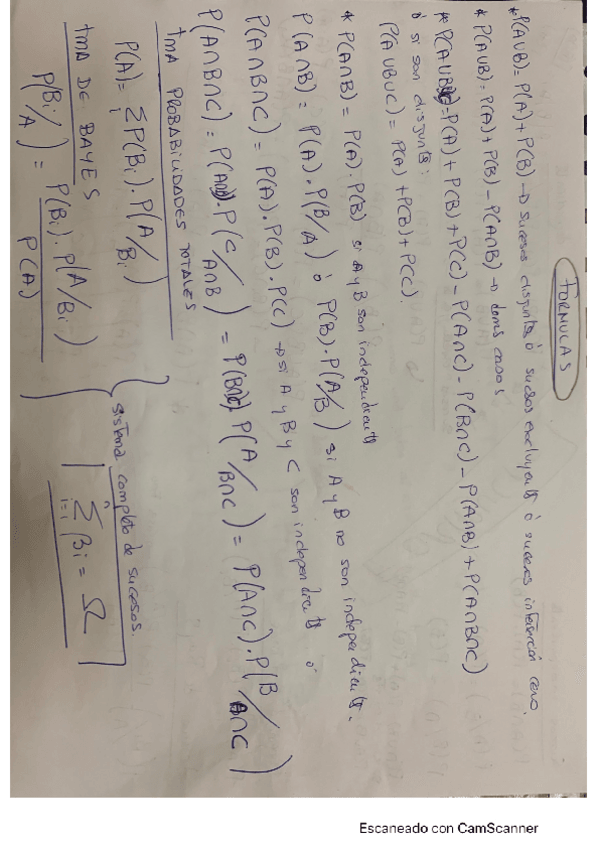 FORMULAS
* P(A∪B) = P(A) + P(B) → sucesos disjuntos ó sucesos excluyentes ó sucesos intersección cero.
* P(A∪B) = P(A) + P(B) - P(A∩B) → demás casos
* P(A∪B∪C) = P(A) + P(B) + P(C) - P(A∩C) - P(B∩C) - P(A∩B) + P(A∩B∩C)
ó si son disjuntos:
P(A∪B∪C) = P(A) + P(B) + P(C).
* P(A∩B) = P(A) · P(B) si A y B son independientes
P(A∩B) = P(A) · P(B/A) ó P(B) · P(A/B) si A y B no son independientes.
P(A∩B∩C) = P(A) · P(B) · P(C) → si A y B y C son independientes ó
P(A∩B∩C) = P(A∩B) · P(C/A∩B) = P(B∩C) P(A/B∩C) = P(A∩C) · P(B/A∩C)
TMA PROBABILIDADES TOTALES
P(A) = Σ P(Bi) · P(A/Bi)
i
TMA DE BAYES
P(Bi/A) = P(Bi) · P(A/Bi)
P(A)
sistema completo de sucesos.
n
Σ Bi = Ω
i=1
Escaneado con CamScanner